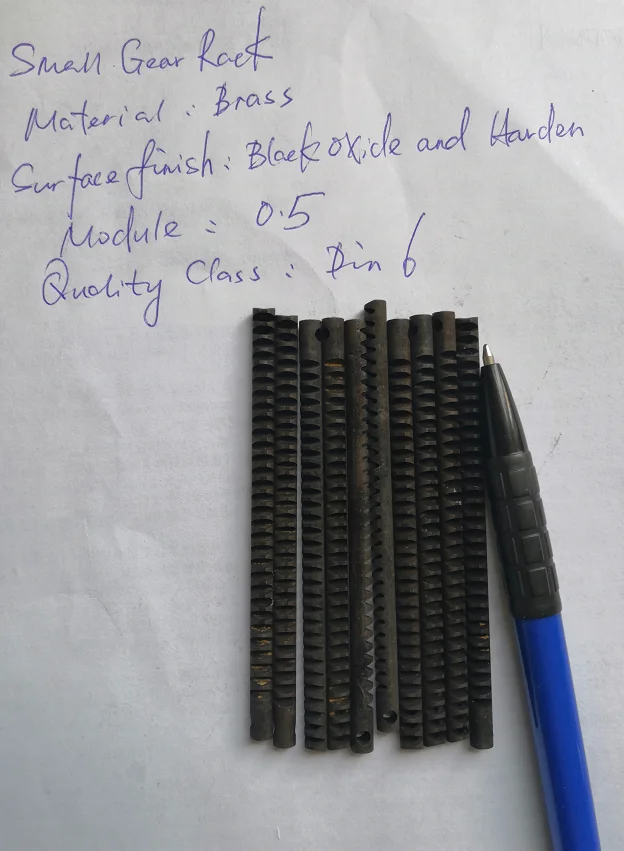 Small Gear Rack
Material : Brass
Surface finish : Black oxide and Harden
Module : 0.5
Quality Class : Din 6